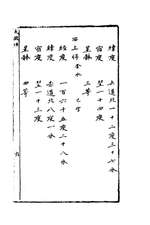 緯度 赤道北一十二度三十七分
宿度 翌一十四度
星躰 三等
西上將
經度 一百六十五度二十八分
緯度 赤道北八度一分
宿度 翌一十三度
星躰 四等